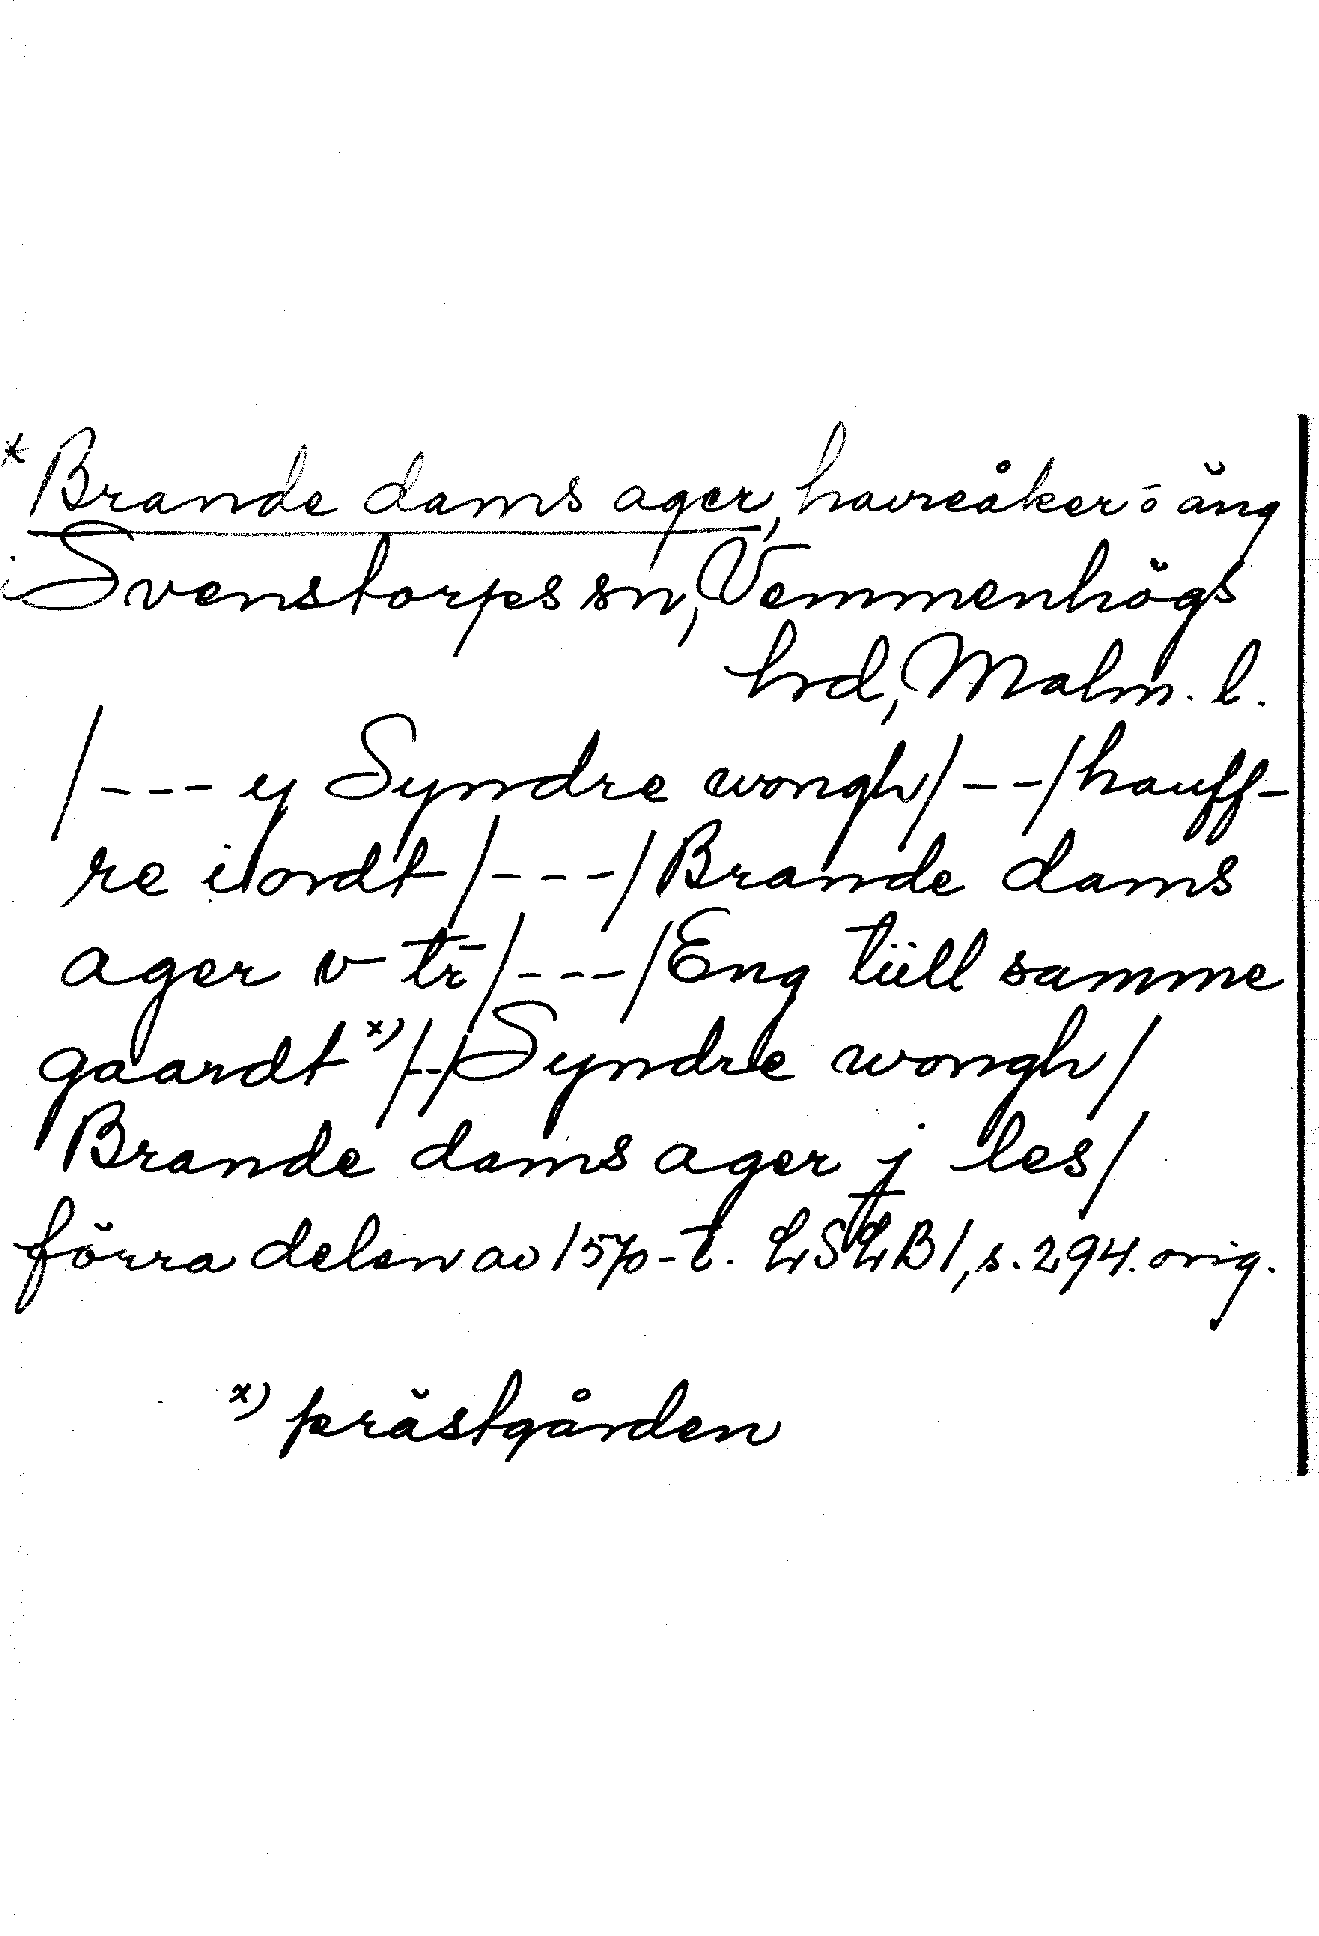 * Brande dams ager, havreåker o äng
i Svenstorps sn, Vemmenhögs
hrd, Malm. l.
/--- y Syndre wongh/--/hauff-
re iordt/---/Brande dams
ager v tr̄/---/Eng tüll samme
gaardt x)/--/Syndre wongh/
Brande dams ager j les/
förra delen av 1570-t. LSLB1, s. 294. orig.
x) prästgården